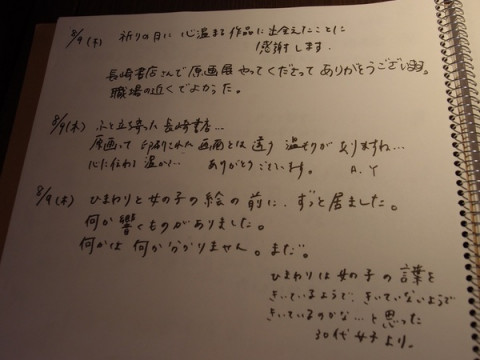 8/9(木) 祈りの日に 心温まる作品に出会えたことに
感謝します。
長崎書店さんで原画展やってくださって ありがとうございます。
職場の近くでよかった。
8/9(木) ふと立ち寄った長崎書店…
原画って 印刷された画面とは違う 温もりがありますね…
心に伝わる温かで… ありがとうございます。 A.Y
8/9(木) ひまわりと女の子の絵の前に、ずっと居ました。
何か響くものがありました。
何かは 何か分かりません。まだ。
ひまわりは女の子の言葉を
きいているようで、きいていないようで
きいているのかな…と思った
30代女子より。